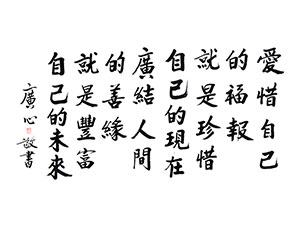 愛惜自己
的福報
就是珍惜
自己的現在
廣結人間
的善緣
就是豐富
自己的未來
廣心敬書